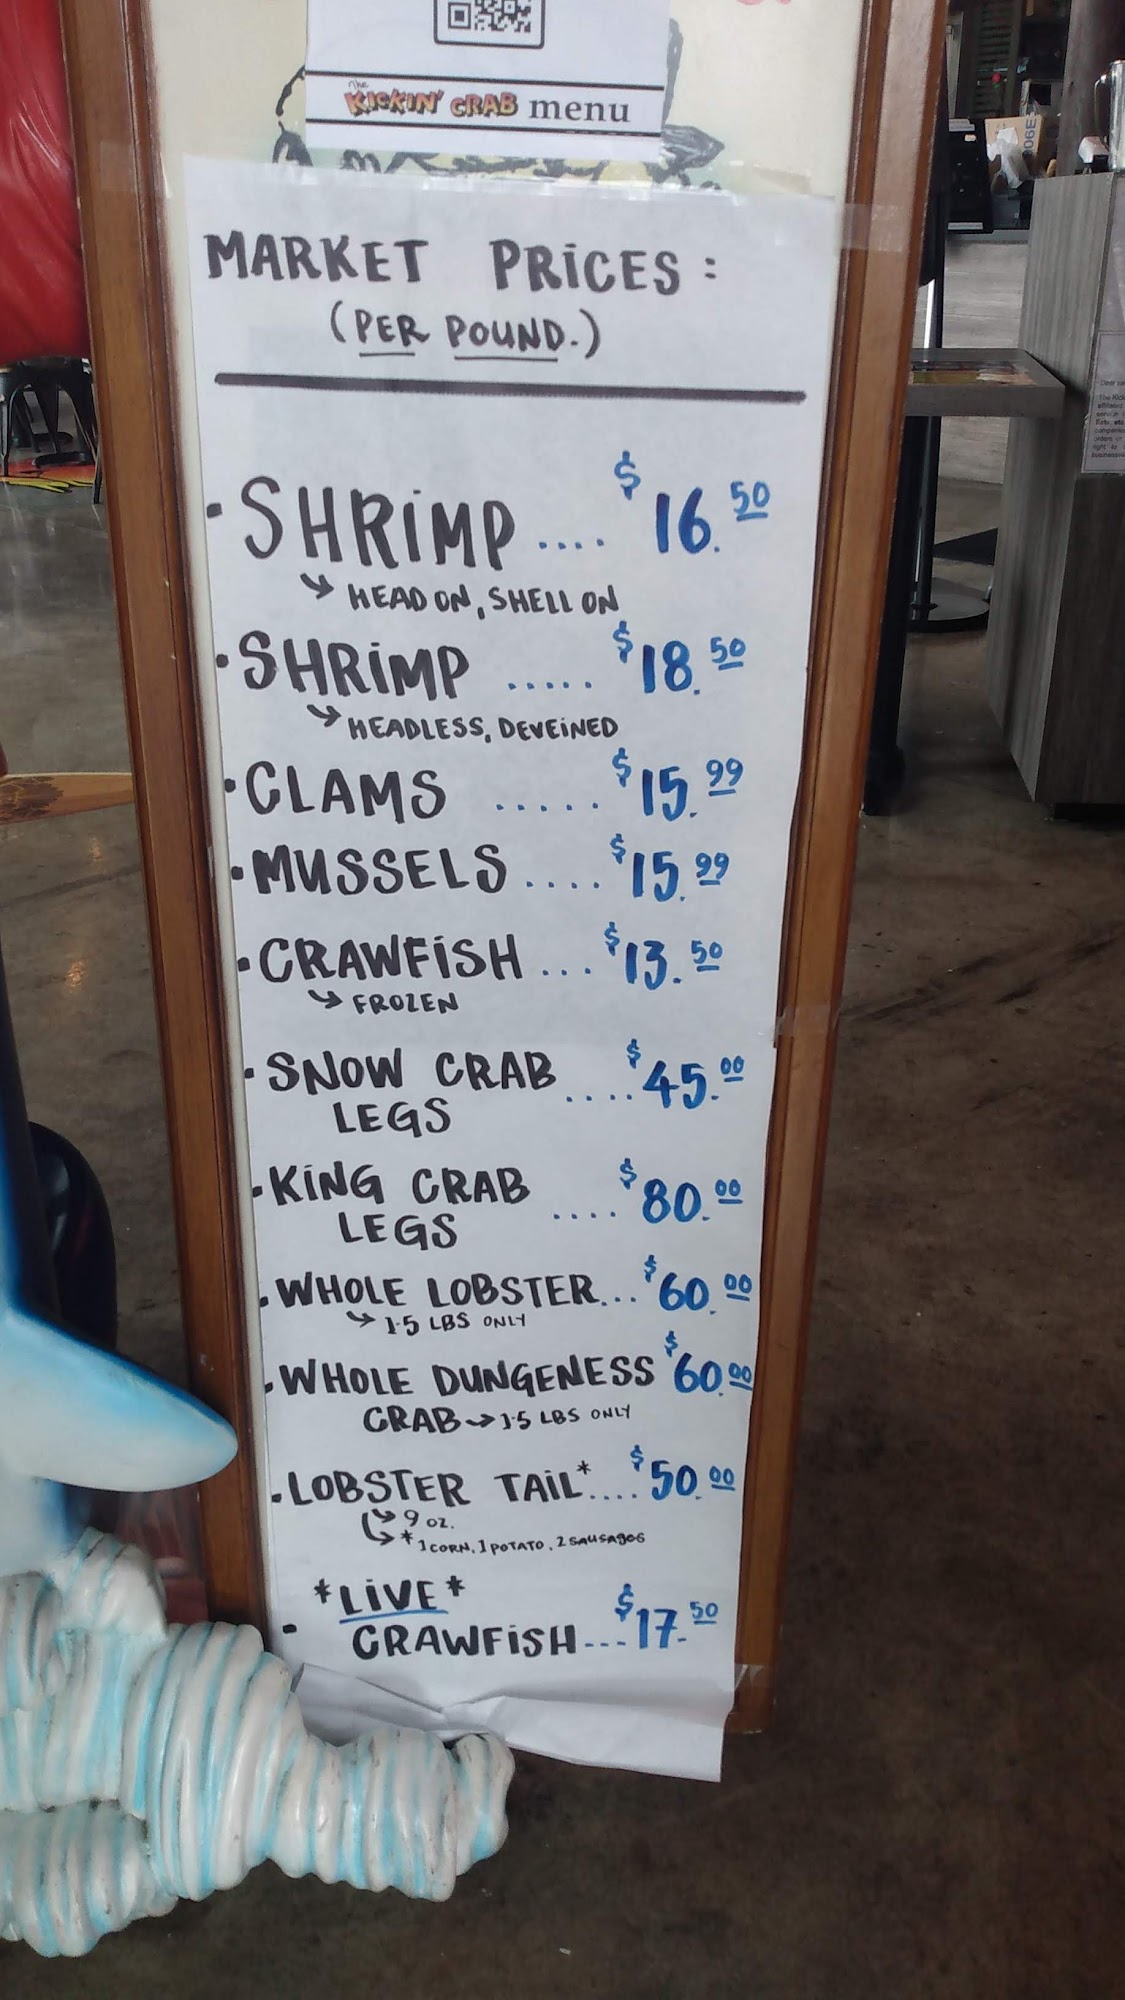 The KICKIN' CRAB menu
MARKET PRICES:
(PER POUND.)
· SHRIMP .... $16.50
↳ HEAD ON, SHELL ON
· SHRIMP ..... $18.50
↳ HEADLESS, DEVEINED
· CLAMS ..... $15.99
· MUSSELS .... $15.99
· CRAWFISH ... $13.50
↳ FROZEN
· SNOW CRAB .... $45.00
LEGS
· KING CRAB .... $80.00
LEGS
· WHOLE LOBSTER... $60.00
↳ 1.5 LBS ONLY
· WHOLE DUNGENESS $60.00
CRAB → 1.5 LBS ONLY
· LOBSTER TAIL* .... $50.00
↳ 9 OZ.
↳ * 1 CORN, 1 POTATO, 2 SAUSAGES
*LIVE*
· CRAWFISH --- $17.50